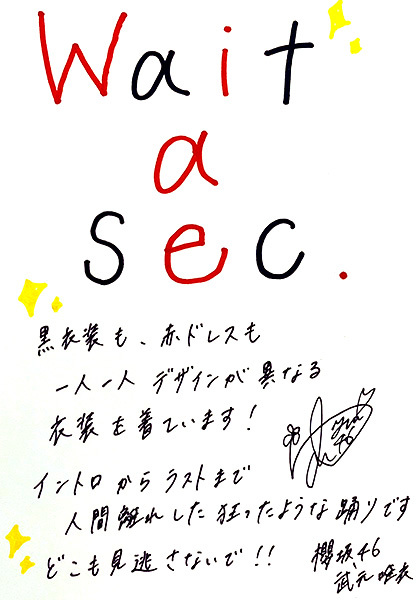 Wait
a
sec.
黒衣装も、赤ドレスも
一人一人 デザインが異なる
衣装を着ています！
イントロからラストまで
人間離れした狂ったような踊りです
どこも見逃さないで！！
櫻坂46
武元唯衣